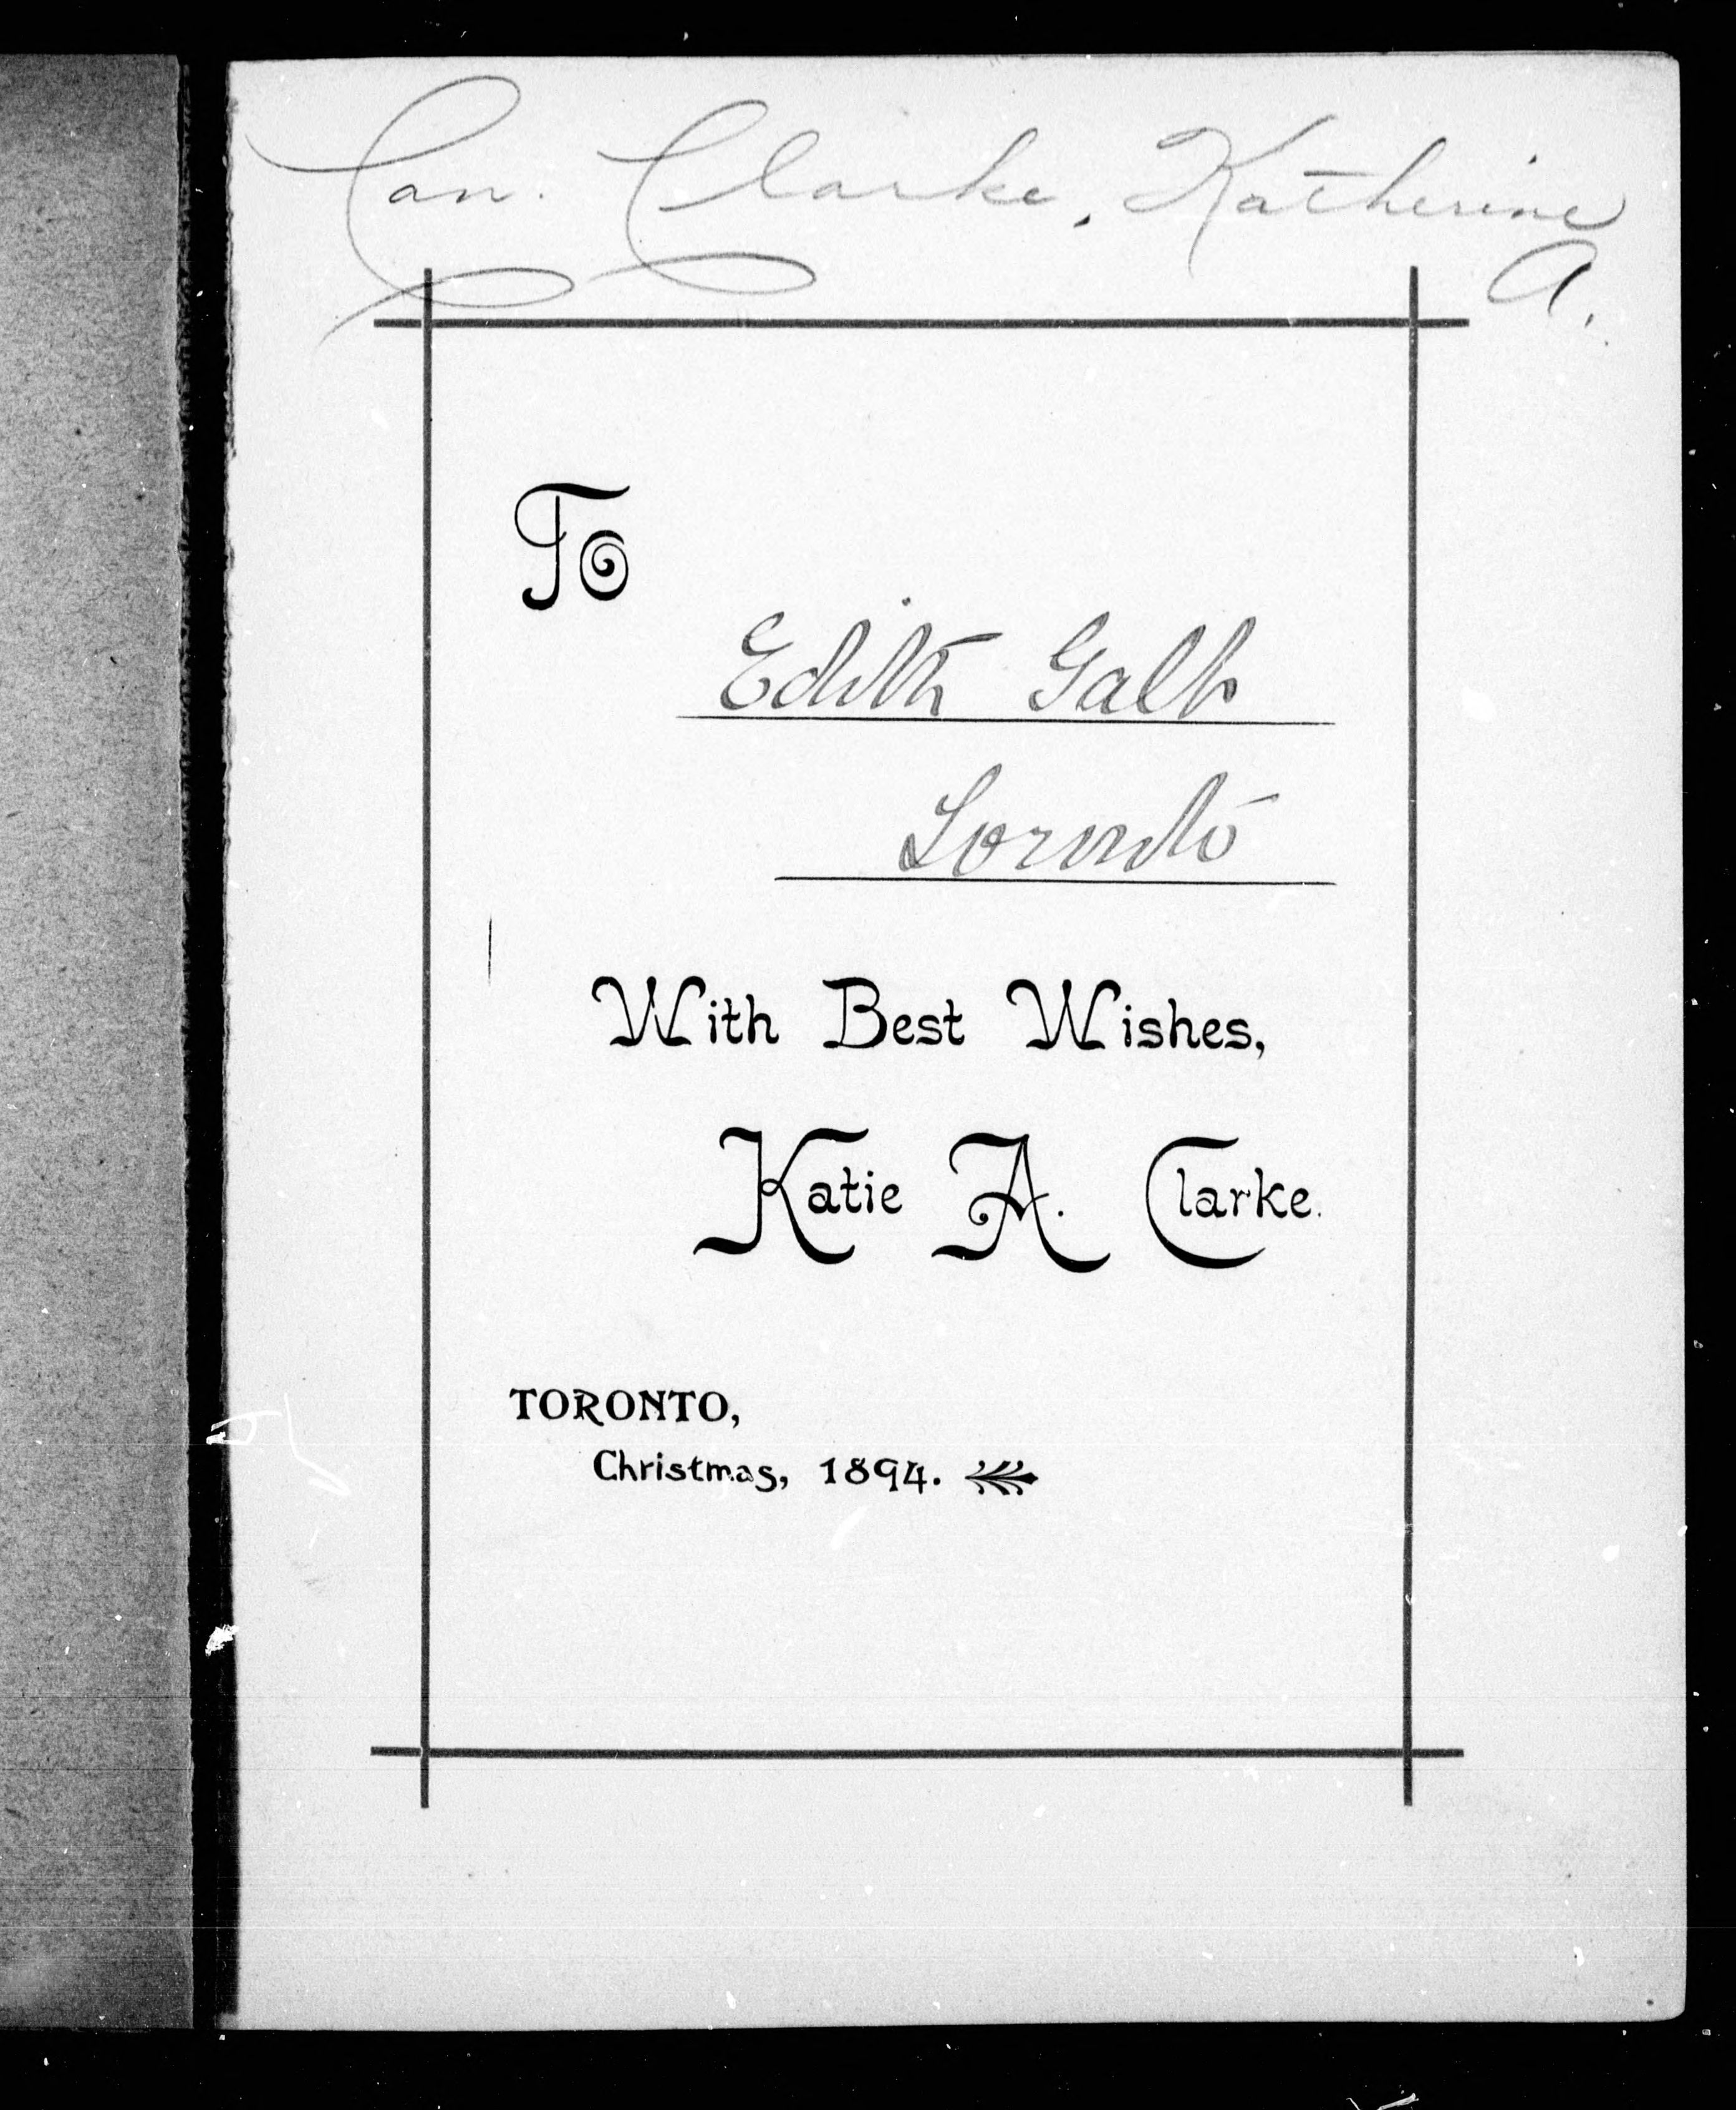 Can. Clarke, Katherine
A.
To
Edith Galt
Toronto
With Best Wishes,
Katie A. Clarke.
TORONTO,
Christmas, 1894.